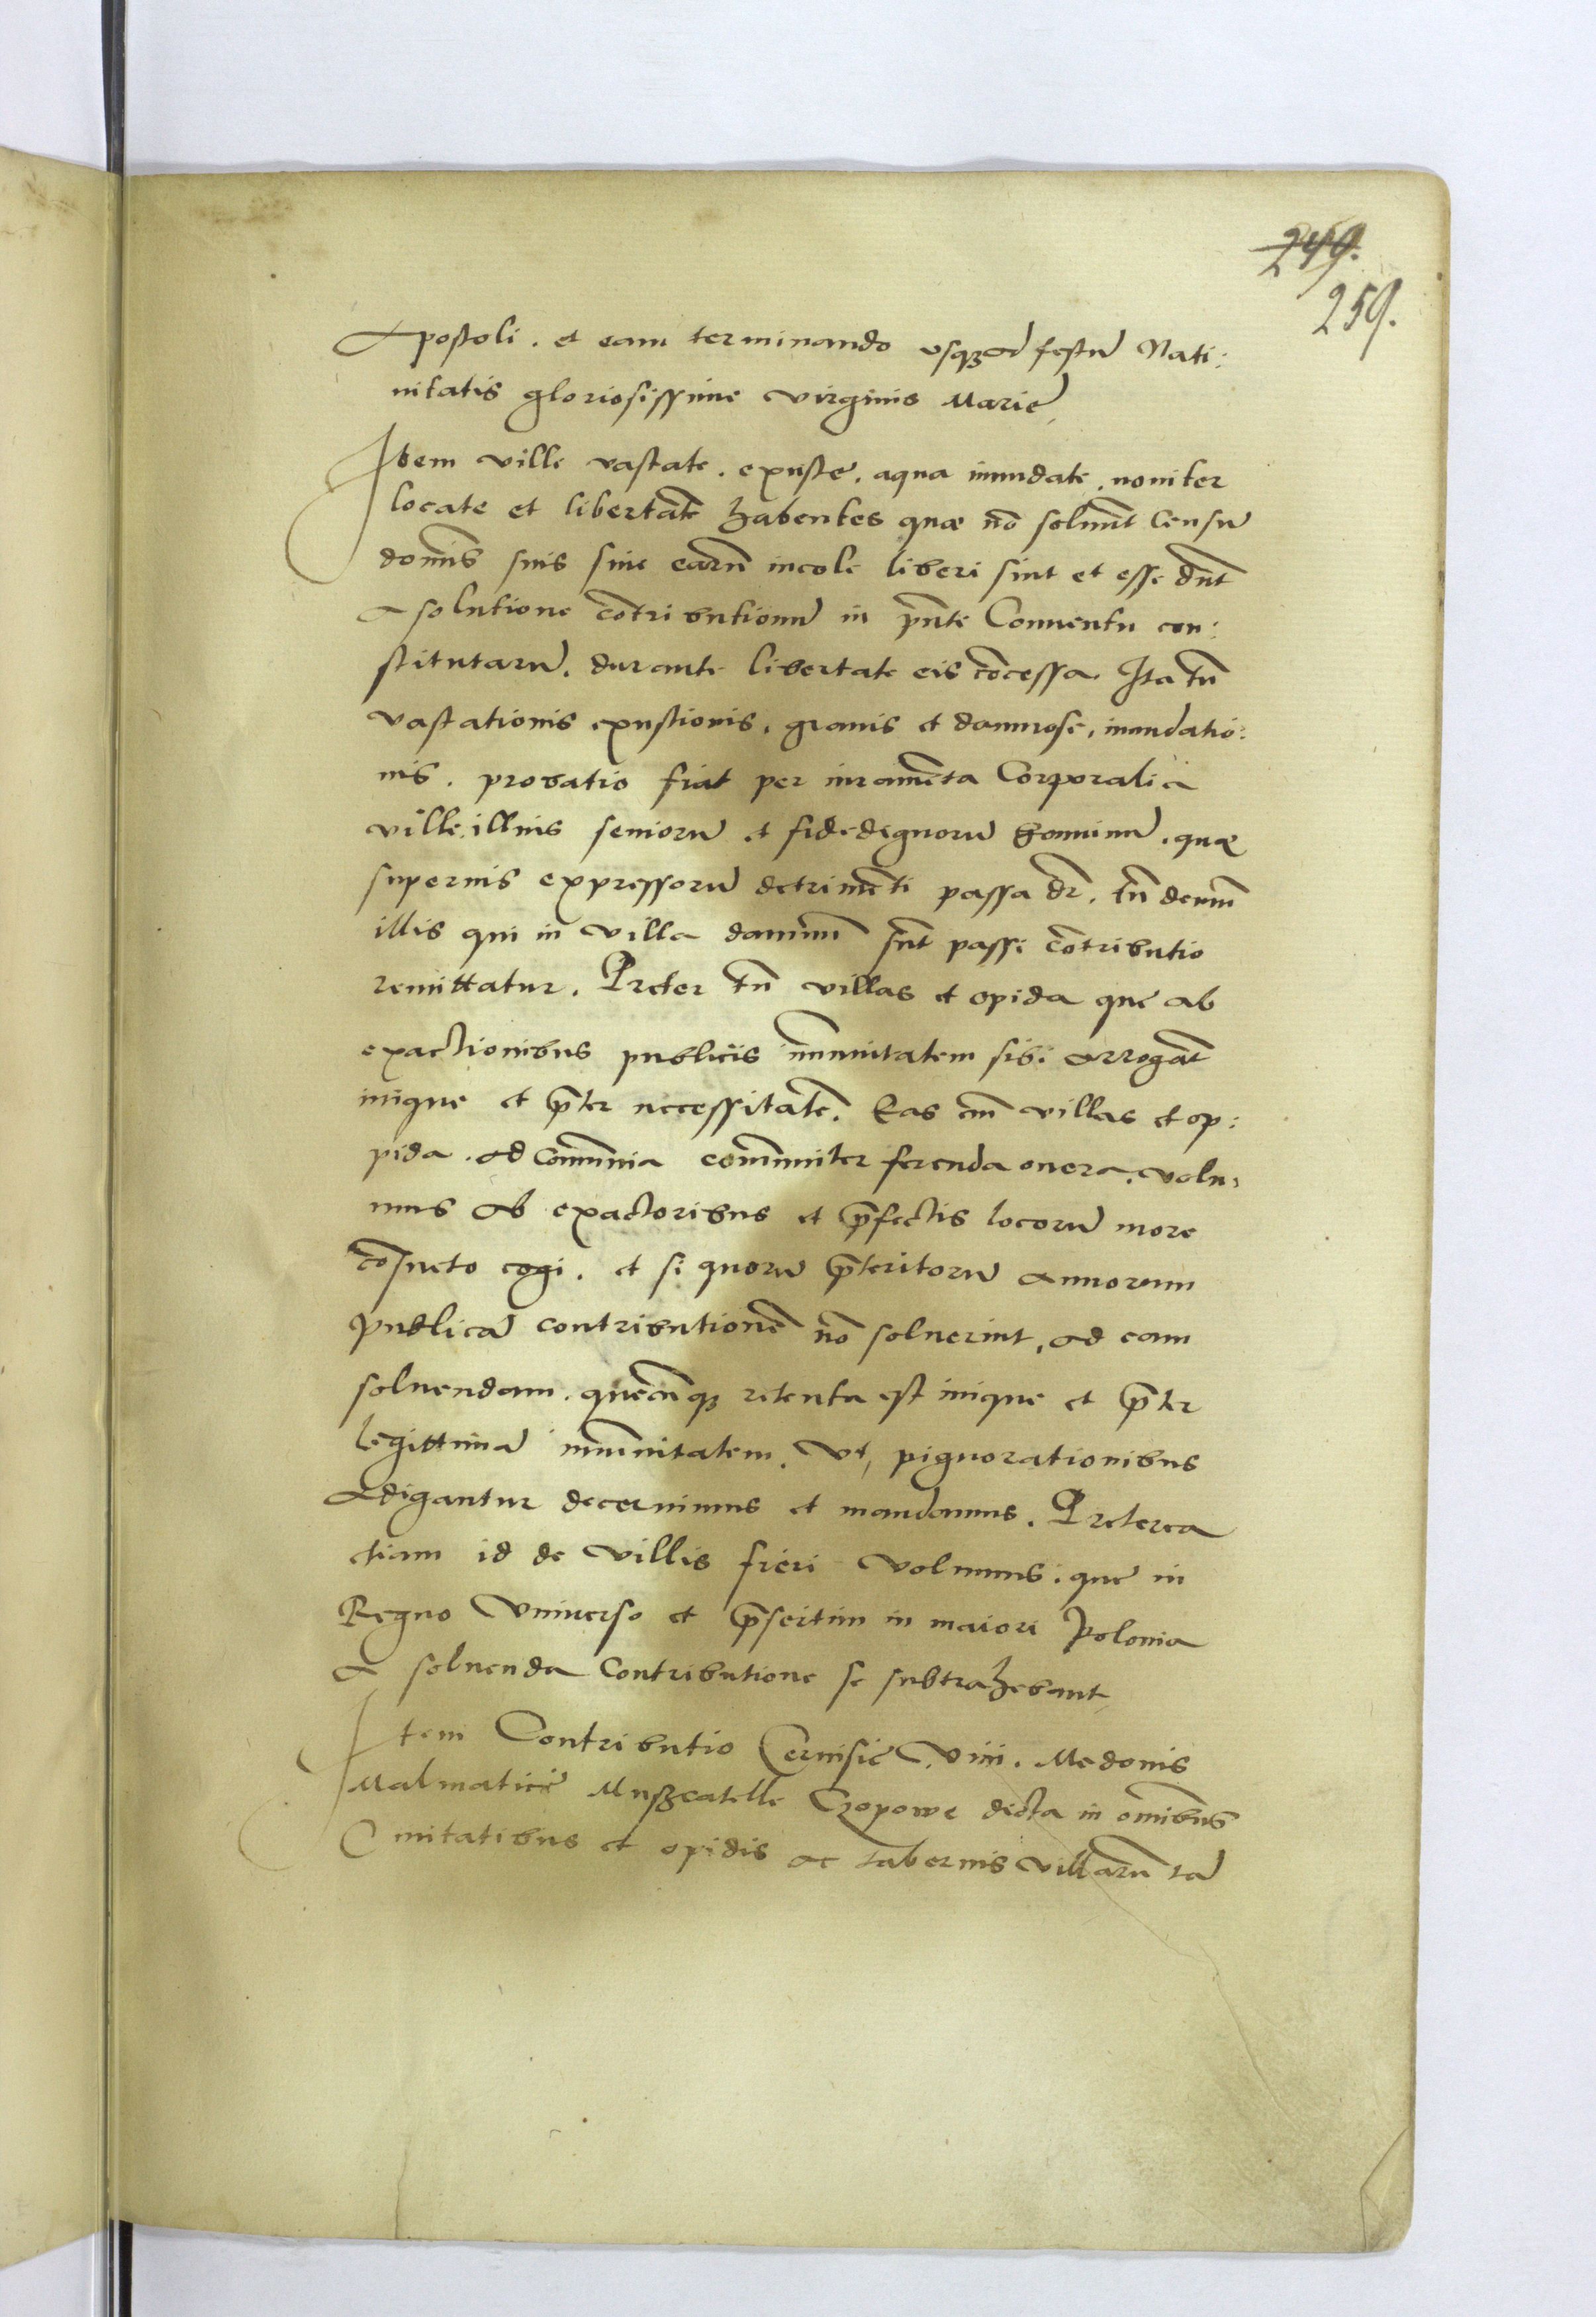 249.
259.
Apostoli. et eam terminando usq3 ad festū Nati:
uitatis gloriosissime virginis Marie,
Item ville vastate. exuste. aqua inundate. nouiter
locate et libertatē habentes quæ nō soluūt Censū
dominis suis siue earū incole liberi sint et esse dn̄t
a solutione cōtributionū in pn̄te Conuentu con:
stitutarū. durante libertate eis cōcessa. Ita tn̄
vastationis exustionis. grauis et damnose. inundatio:
nis. probatio fiat per iuramēta Corporalia
ville illius seniorū et fidedignorū hominū. quæ
superius expressorū detrimēti passa dr̄. tn̄ demū
illis qui in villa damnū sūt passi cōtributio
remittatur. Preter tn̄ villas et opida que ab
exactionibus publicis im̄unitatem sibi arrogāt
inique et p̄ter necessitatē. Eas em̄ villas et op:
pida. ad Com̄unia com̄uniter ferenda onera. volu:
mus ab exactoribus et p̄fectis locorū more
cōsueto cogi. et si quorū p̄teritorū annorum
publicā contributionē nō soluerint, ad eam
soluendam. quecūq3 retenta est inique et p̄ter
legittimā im̄unitatem. Vt, pignorationibus
Adigantur decernimus et mandamus. Preterea
etiam id de Villis fieri volumus. que in
Regno Vniuerso et p̄sertim in maiori Polonia
a soluenda Contributione se subtrahebant,
Item Contributio Ceruisie Vini. Medonis
Malmatice Muszcatelle Czopowe dicta in om̄ibus
Ciuitatibus et opidis ac tabernis villarū tā